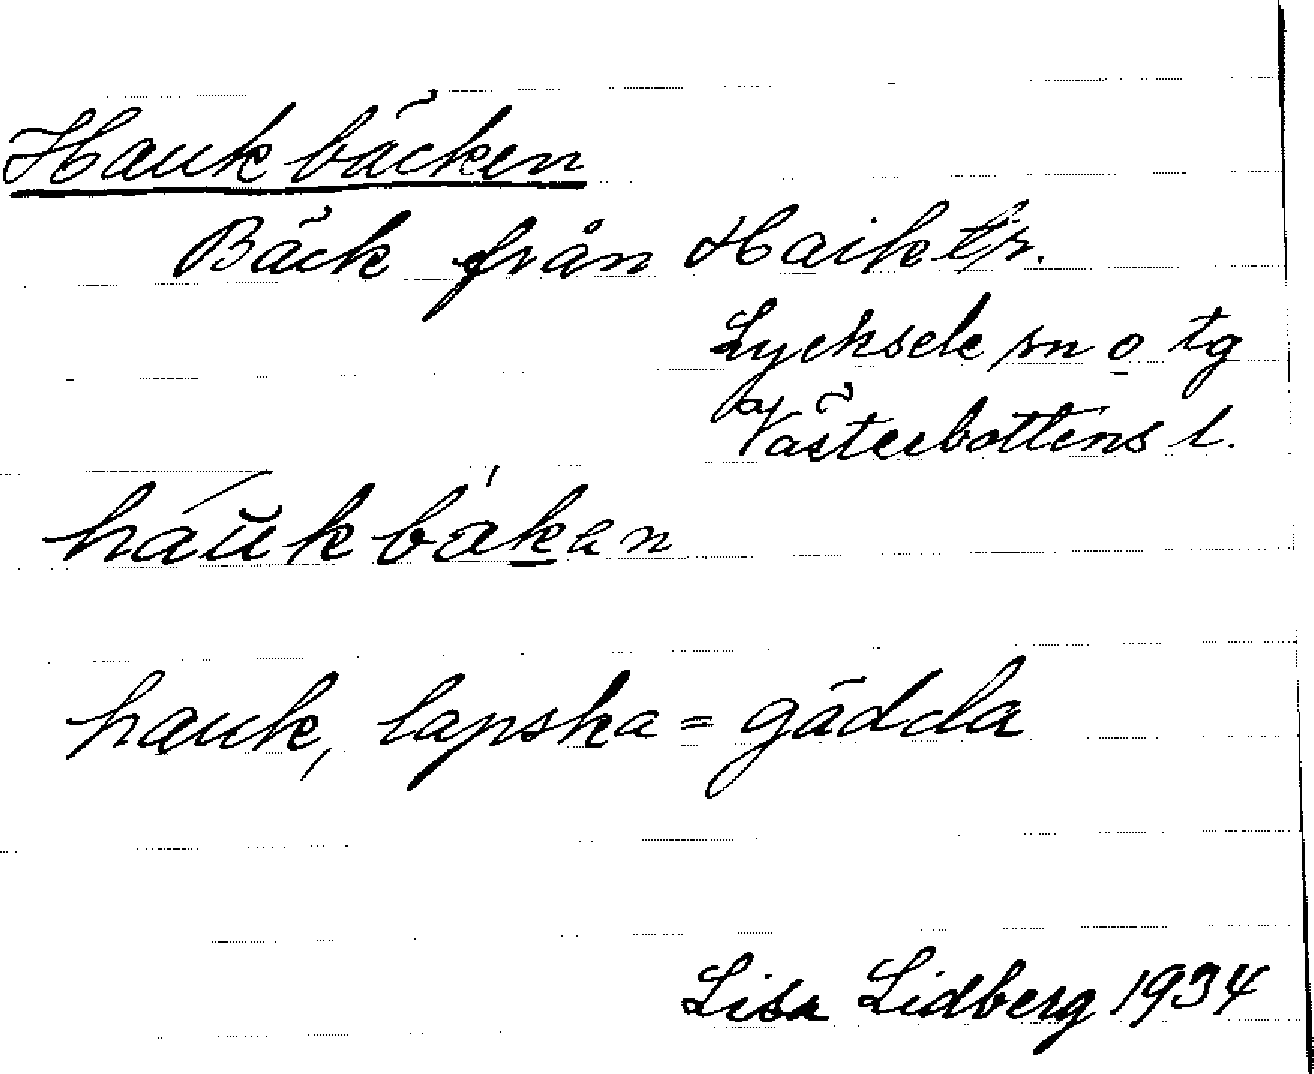 Haukbäcken
Bäck från Haiktr.
Lycksele sn o tg
Västerbottens l.
háŭkbäkan
hauk, lapska = gädda
Lisa Lidberg 1934